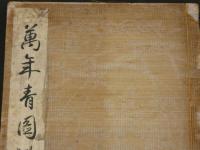 萬年青圖